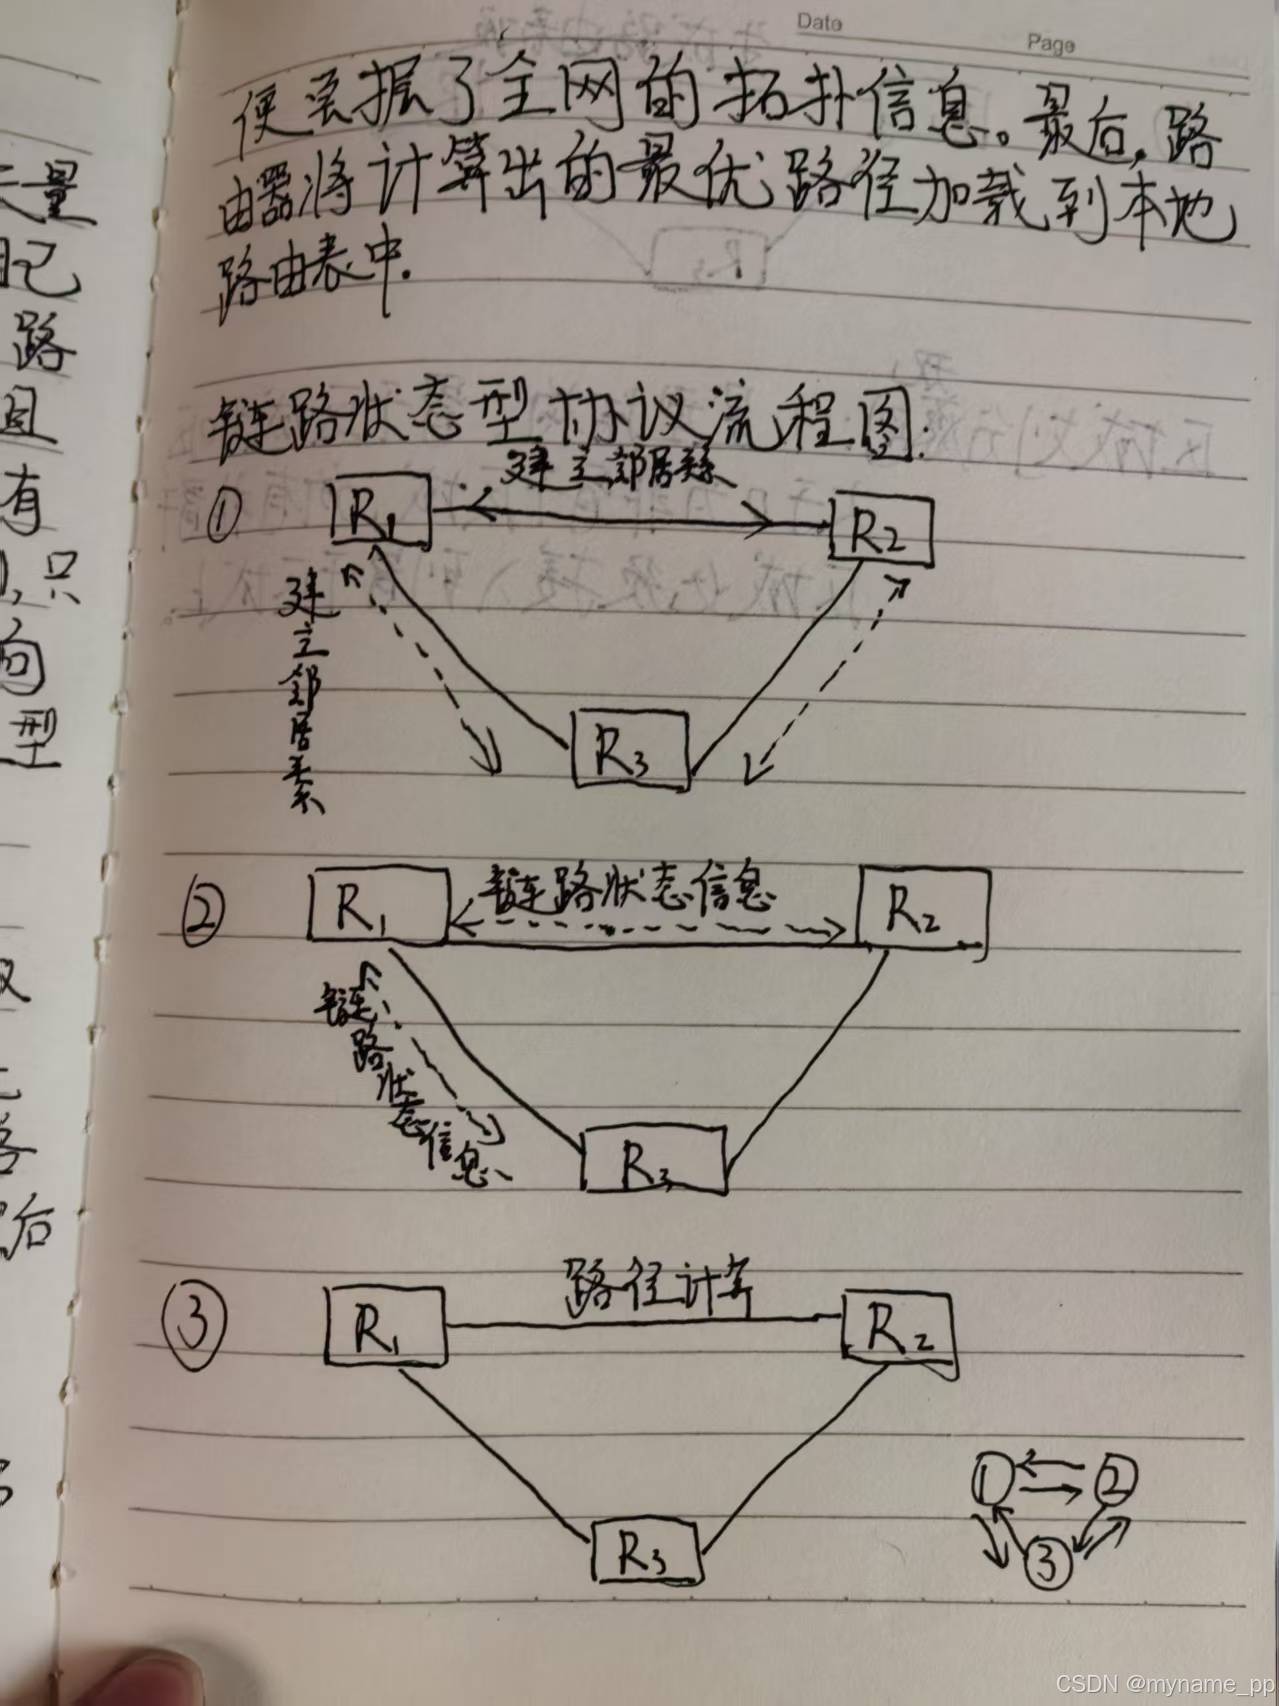 Date
Page
便掌握了全网的拓扑信息。最后,路
由器将计算出的最优路径加载到本地
路由表中.
链路状态型协议流程图.
建立邻居关系
① R₁ R₂
建立邻居关系
R₃
② R₁ 链路状态信息 R₂
链路状态信息
R₃
路径计算
③ R₁ R₂
① ②
R₃ ③
量
自己
路
且
有
,只
向
型
后
CSDN @myname_pp